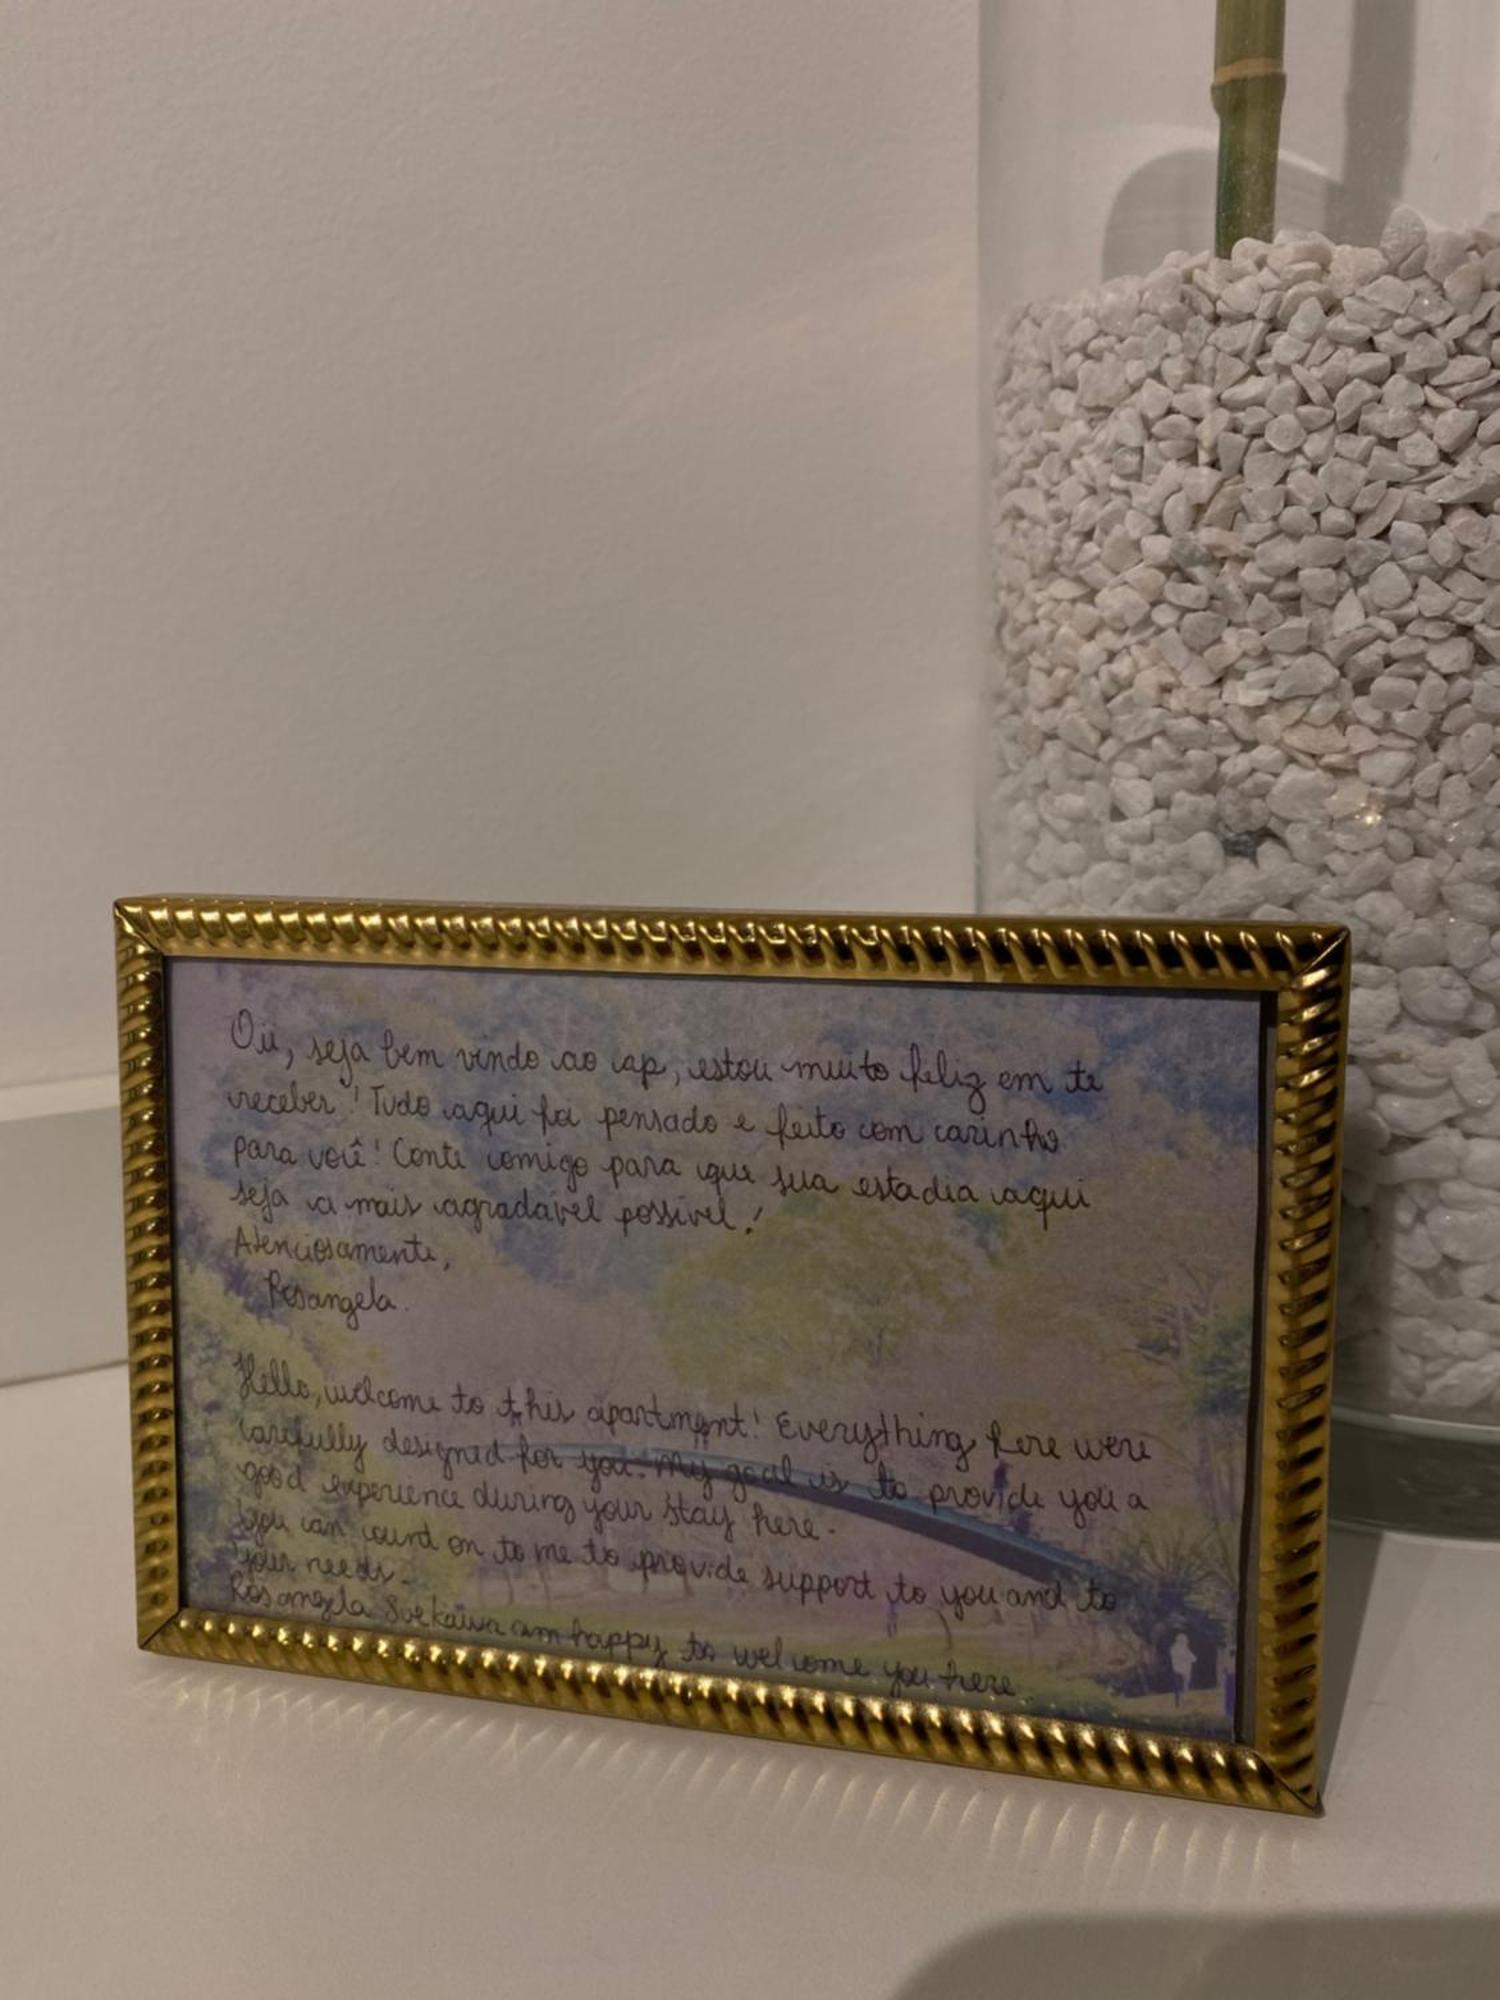 Oii, seja bem vindo ao ap, estou muito feliz em te
receber! Tudo aqui foi pensado e feito com carinho
para você! Conte comigo para que sua estadia aqui
seja a mais agradável possível!
Atenciosamente,
Rosangela.
Hello, welcome to this apartment! Everything here were
carefully designed for you. My goal is to provide you a
good experience during your stay here.
you can count on to me to provide support to you and to
your needs.
Rosangela am happy to welcome you here